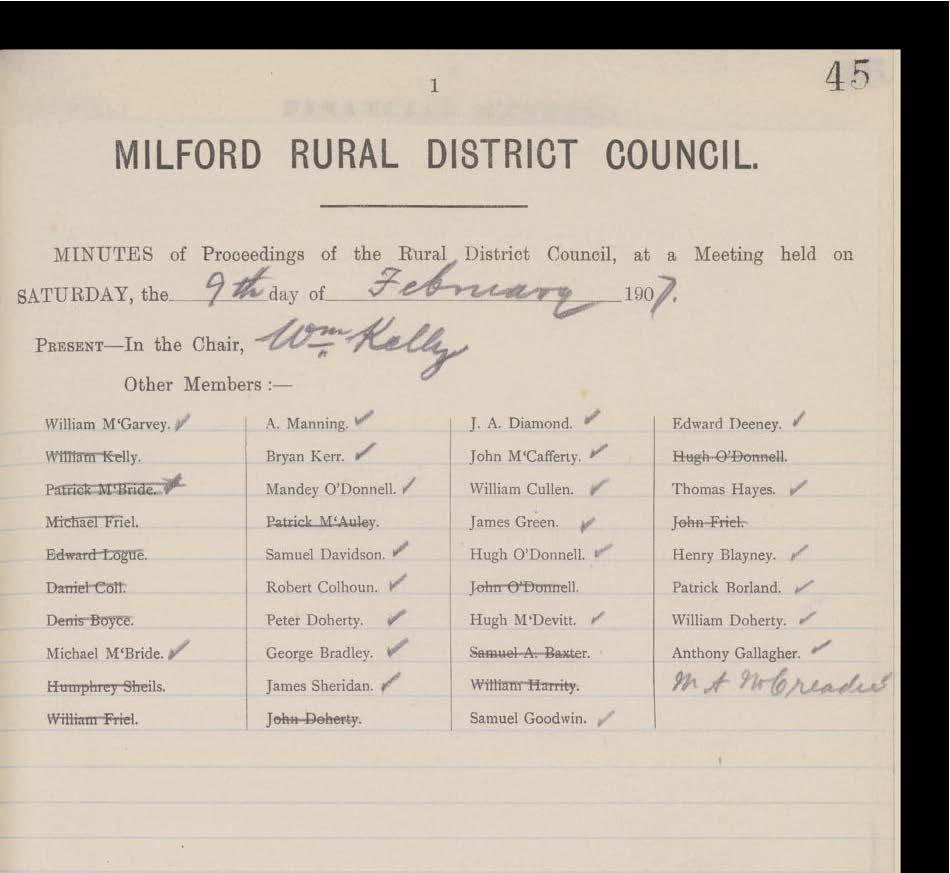 45
1
MILFORD RURAL DISTRICT COUNCIL.
MINUTES of Proceedings of the Rural District Council, at a Meeting held on
SATURDAY, the 9th day of February 1907.
PRESENT—In the Chair, Wm Kelly
Other Members :—
William M‘Garvey.
William Kelly.
Patrick M‘Bride.
Michael Friel.
Edward Logue.
Daniel Coll.
Denis Boyce.
Michael M‘Bride.
Humphrey Sheils.
William Friel.
A. Manning.
Bryan Kerr.
Mandey O’Donnell.
Patrick M‘Auley.
Samuel Davidson.
Robert Colhoun.
Peter Doherty.
George Bradley.
James Sheridan.
John Doherty.
J. A. Diamond.
John M‘Cafferty.
William Cullen.
James Green.
Hugh O’Donnell.
John O’Donnell.
Hugh M‘Devitt.
Samuel A. Baxter.
William Harrity.
Samuel Goodwin.
Edward Deeney.
Hugh O’Donnell.
Thomas Hayes.
John Friel.
Henry Blayney.
Patrick Borland.
William Doherty.
Anthony Gallagher.
M A McCreadie